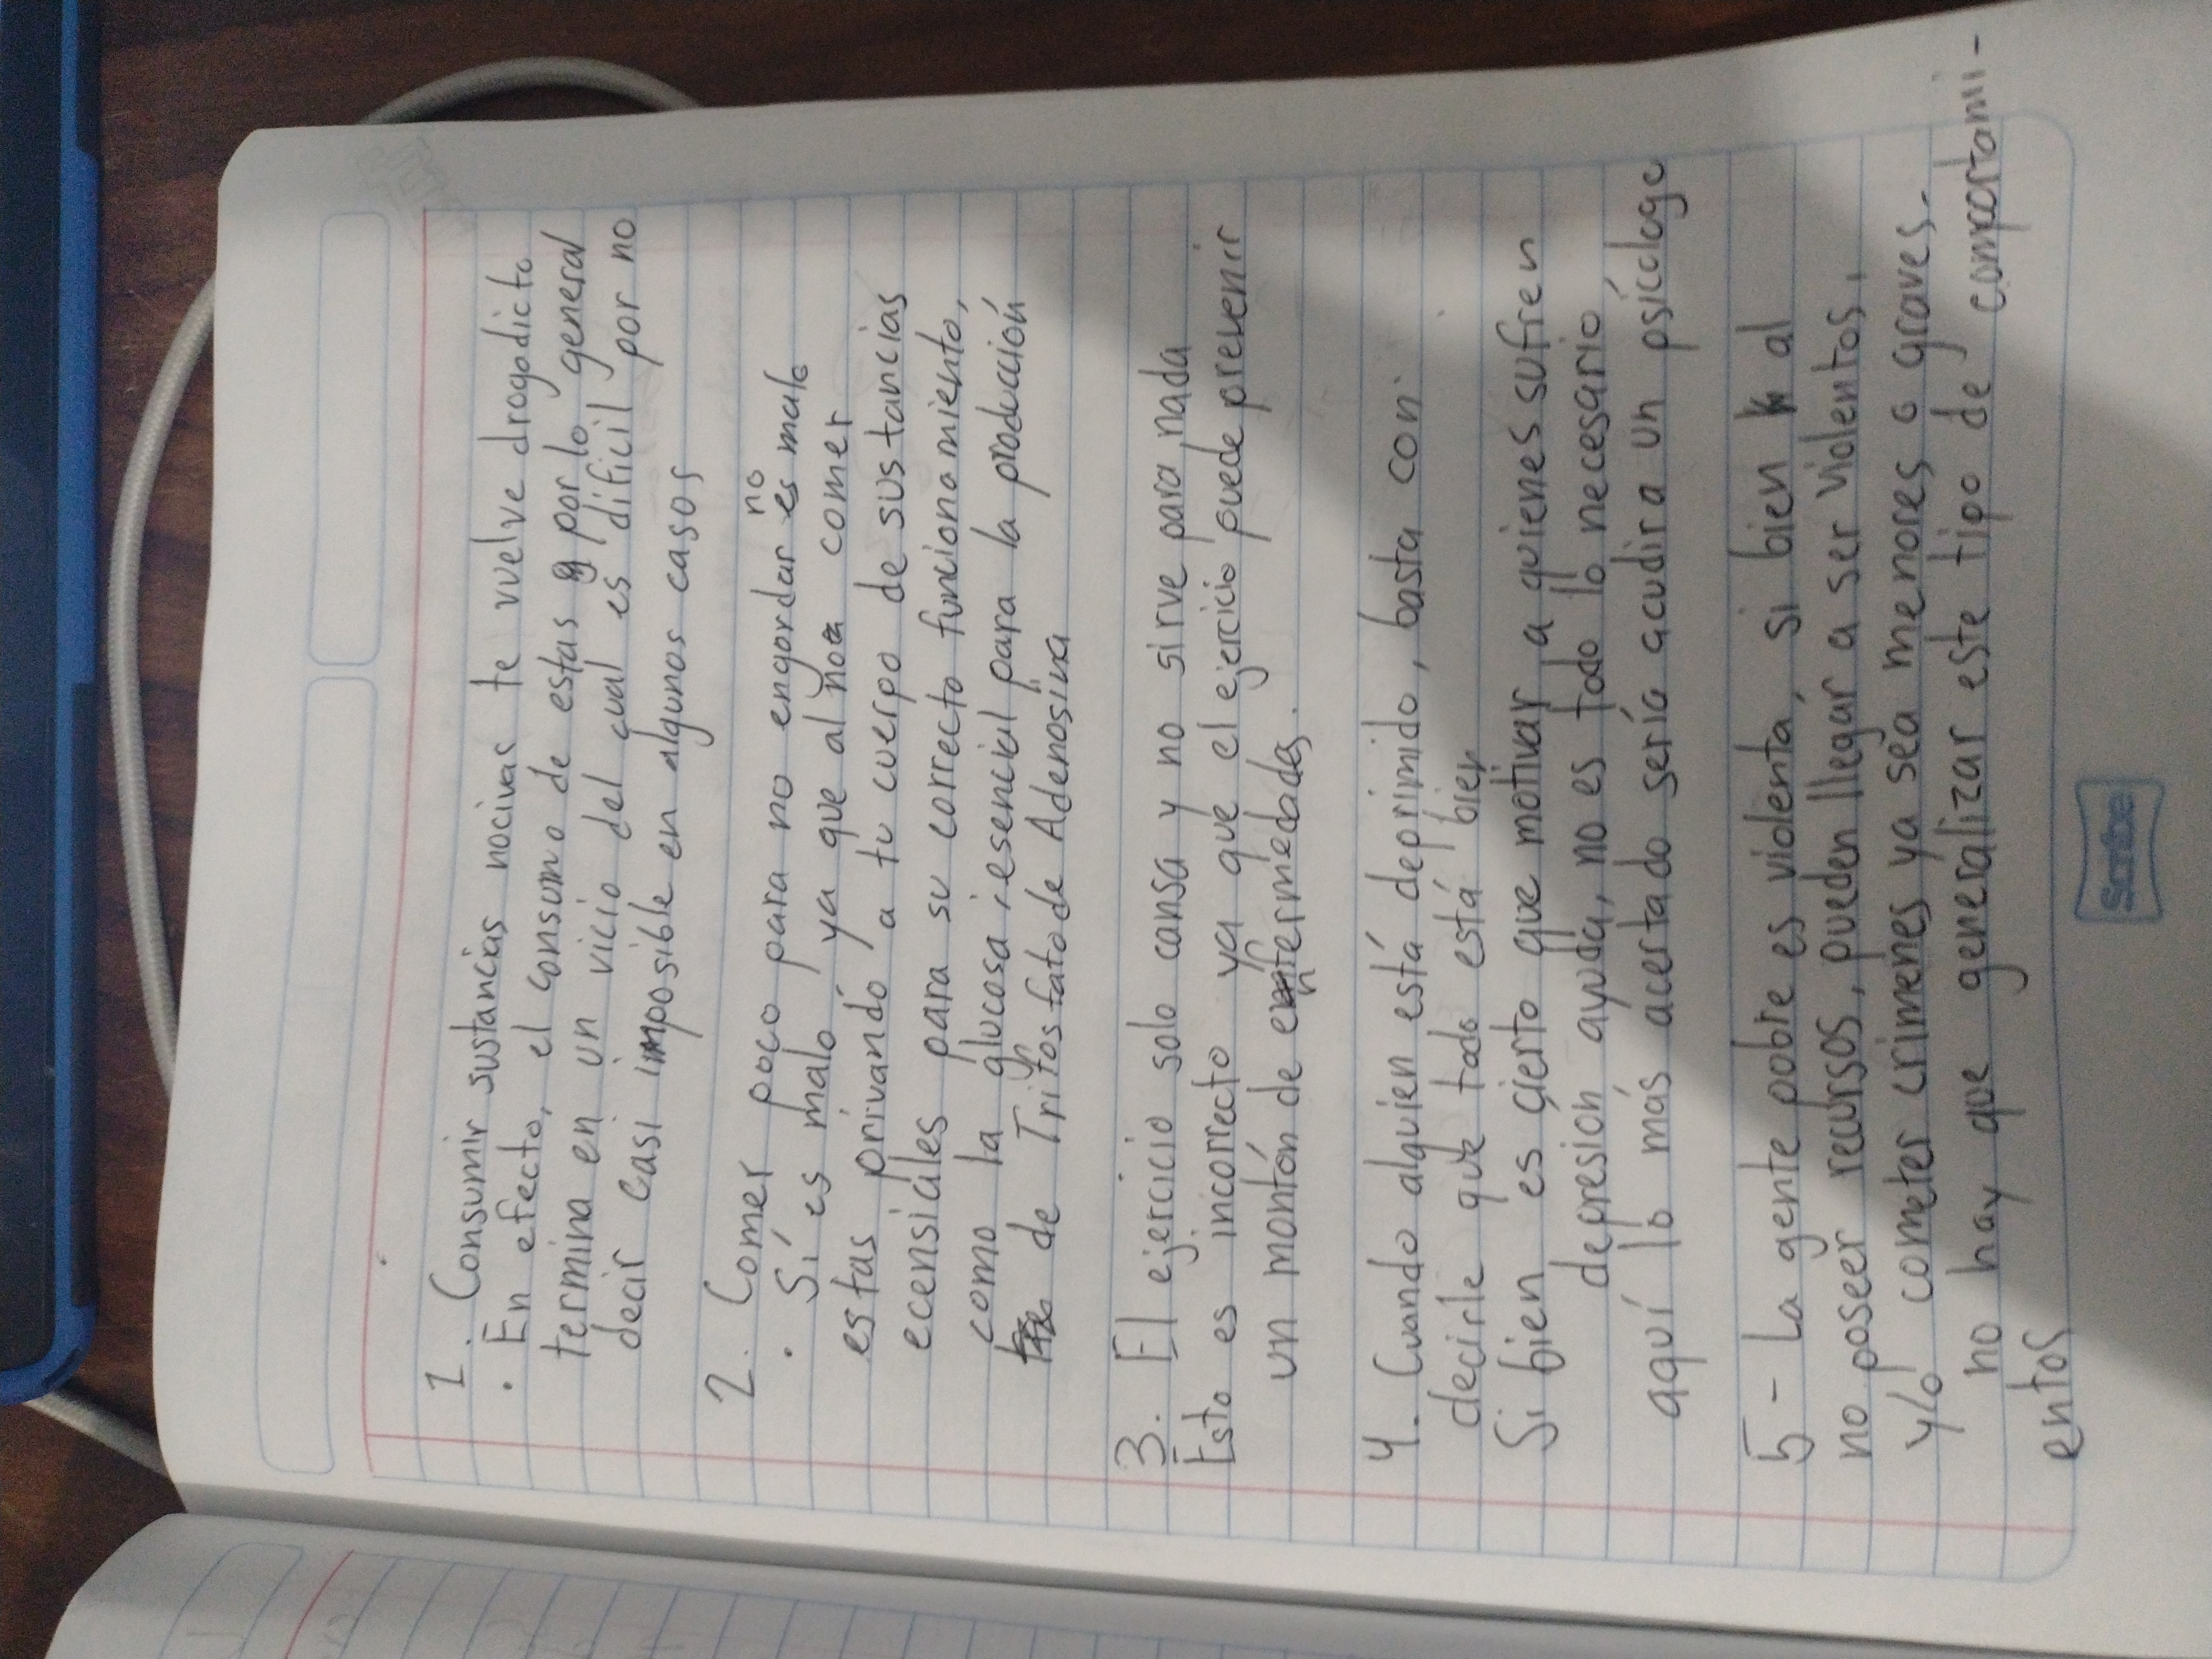 1. Consumir sustancias nocivas te vuelve drogadicto
· En efecto, el consumo de estas y por lo general
termina en un vicio del cual es dificil por no
decir casi imposible en algunos casos
2. Comer poco para no engordar no es malo
· Sí es malo ya que al no comer
estas privando a tu cuerpo de sustancias
ecensiales para su correcto funcionamiento,
como la glucosa, esencial para la producción
de Trifosfato de Adenosina
3. El ejercicio solo cansa y no sirve para nada
Esto es incorrecto ya que el ejercicio puede prevenir
un montón de enfermedades.
4. Cuando alguien está deprimido, basta con
decirle que todo está bien
Si bien es cierto que motivar a quienes sufren
depresion ayuda, no es todo lo necesario
aquí lo más acertado sería acudir a un psicólogo
5- La gente pobre es violenta, si bien al
no poseer recursos, pueden llegar a ser violentos,
y/o cometer crimenes ya sea menores o graves.
no hay que generalizar este tipo de comportami-
entos
Scribe